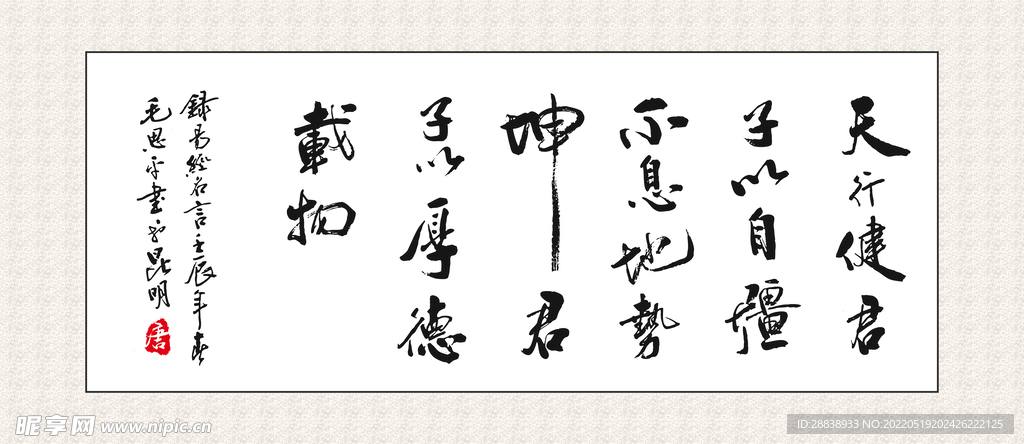 天行健君
子以自疆
不息地勢
坤君
子以厚德
載物
錄易經名言壬辰年春
毛思平書於昆明
唐
昵享网 www.nipic.cn
ID:28838933 NO:20220519202426222125